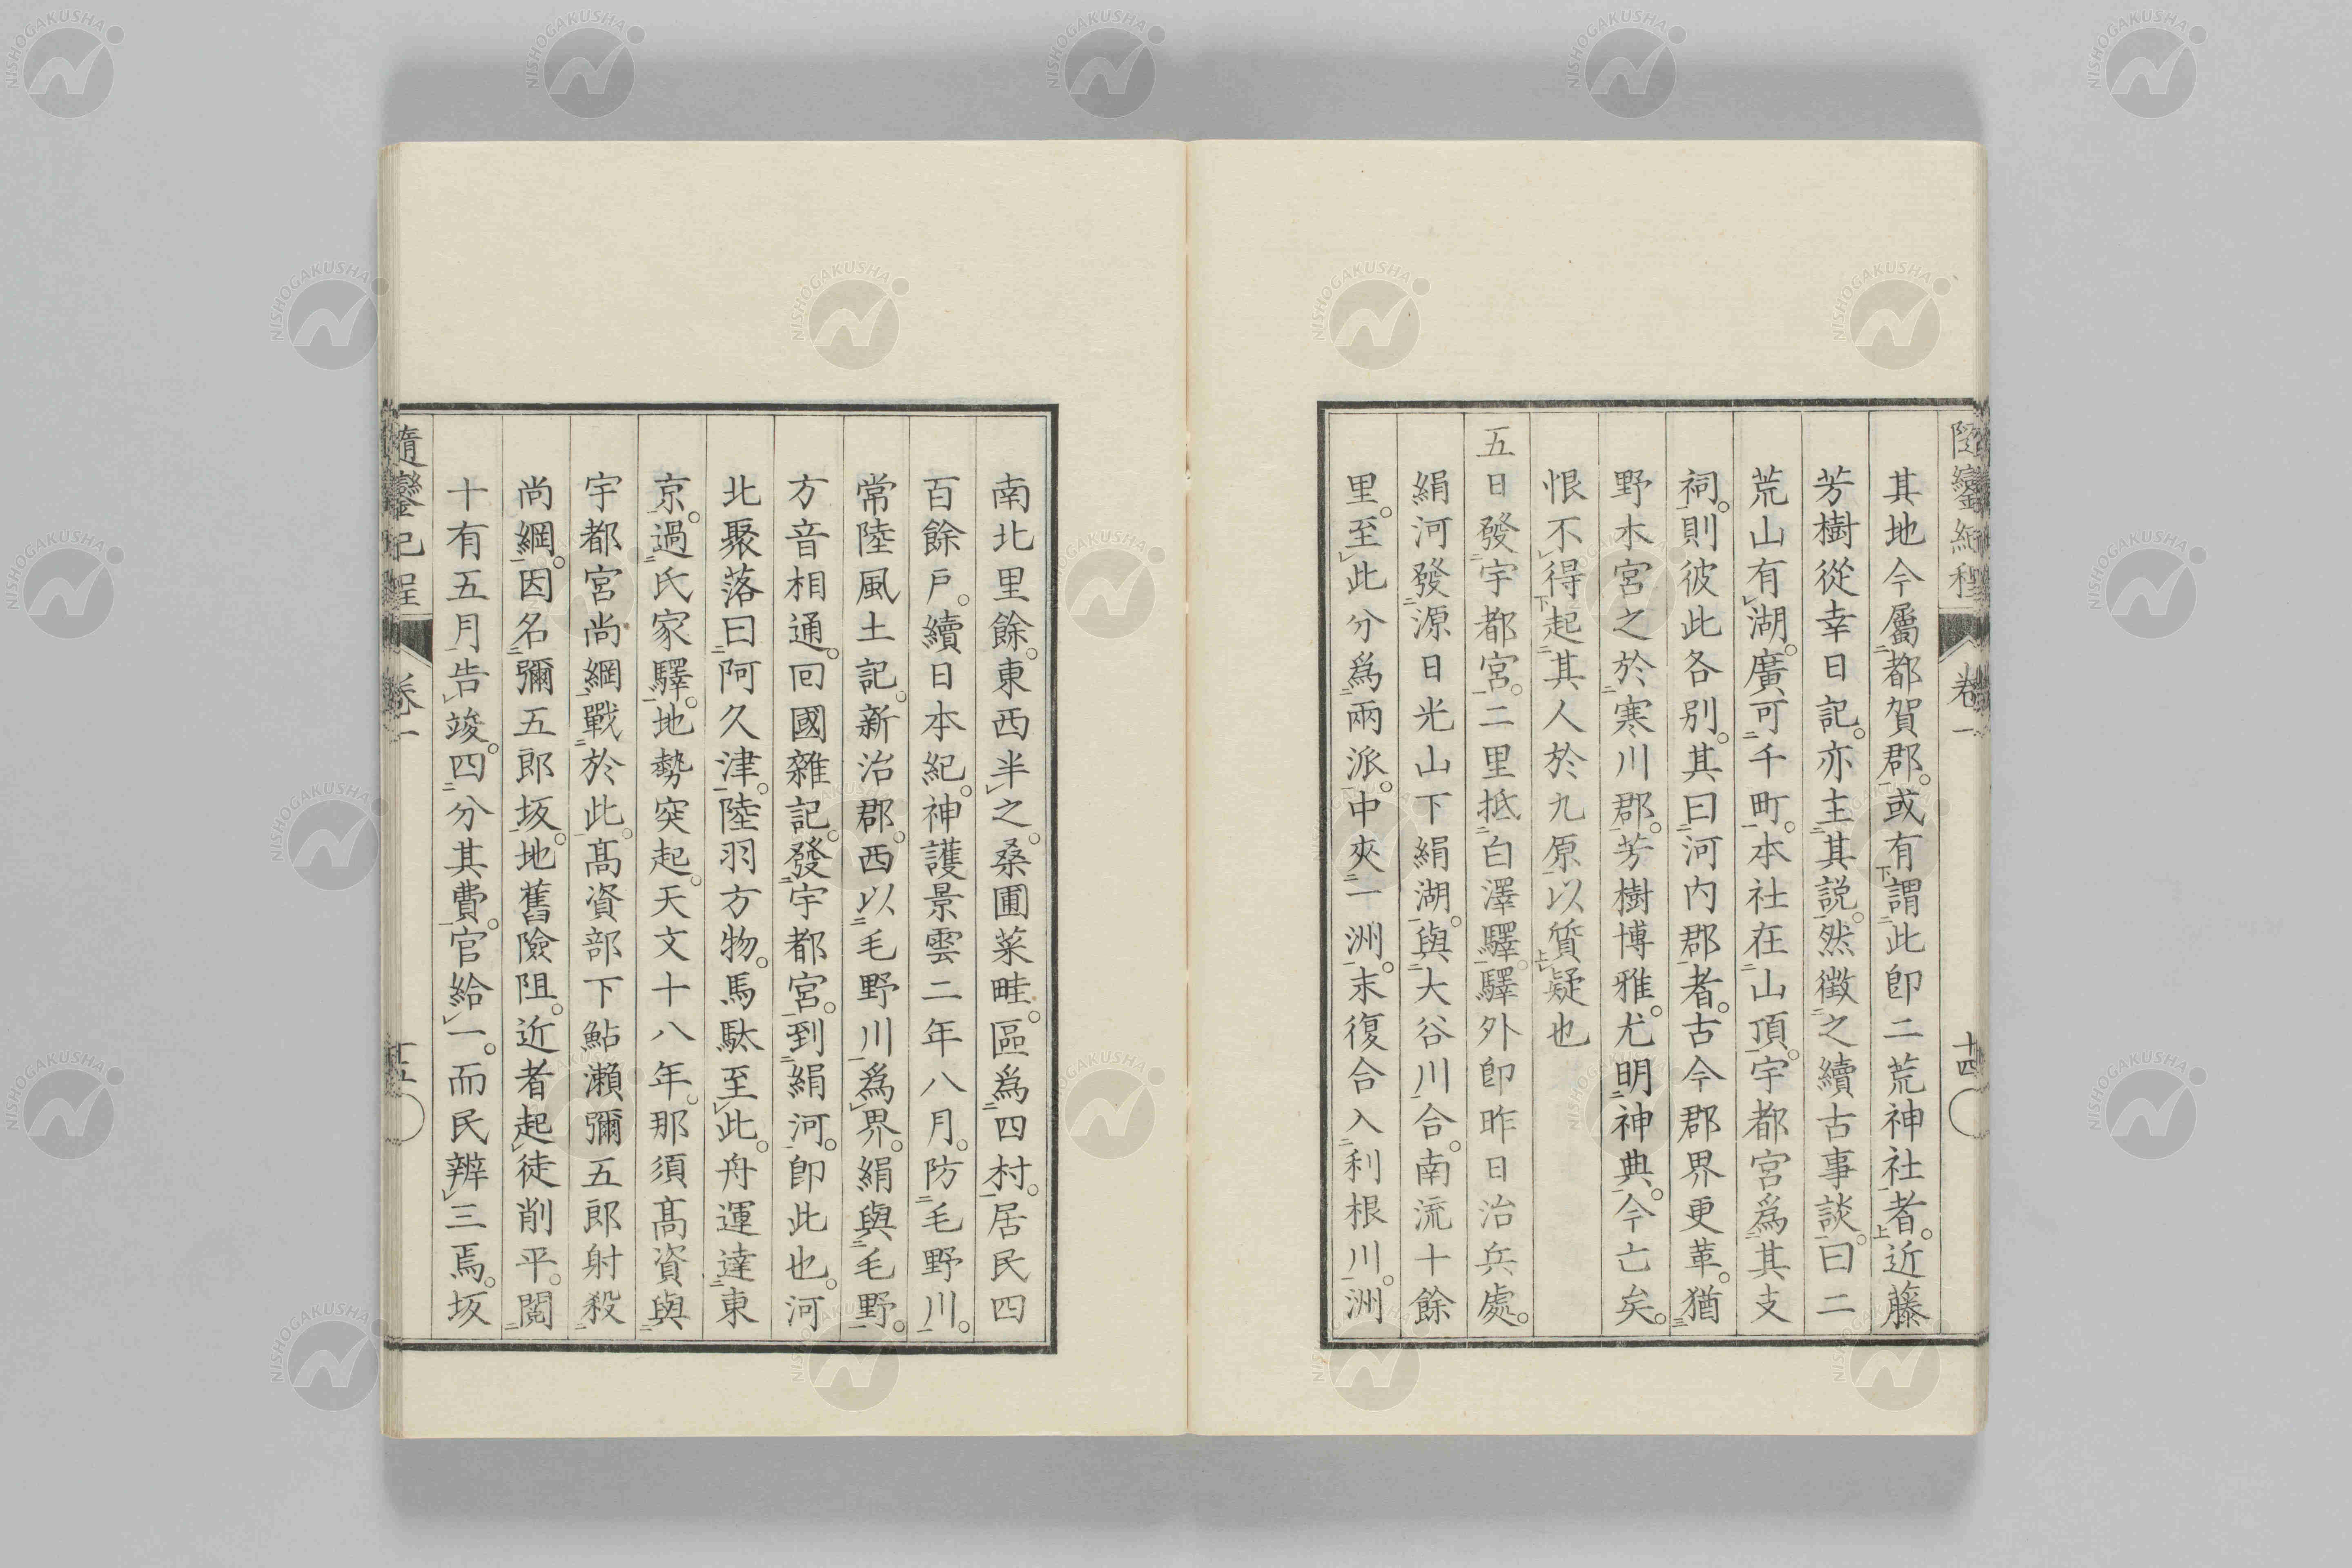 隨鑾紀程 卷一 十四
其地今屬都賀郡。或有謂此卽二荒神社者。近藤
芳樹從幸日記。亦主其説。然徵之續古事談。曰二
荒山有湖。廣可千町。本社在山頂。宇都宮爲其支
祠。則彼此各別。其曰河内郡者。古今郡界更革。猶
野木宮之於寒川郡。芳樹博雅。尤明神典。今亡矣。
恨不得起其人於九原以質疑也
五日發宇都宮。二里抵白澤驛。驛外卽昨日治兵處。
絹河發源日光山下絹湖。與大谷川合。南流十餘
里。至此分爲兩派。中夾一洲。末復合入利根川。洲
南北里餘。東西半之。桑圃菜畦。區爲四村。居民四
百餘戸。續日本紀。神護景雲二年八月。防毛野川。
常陸風土記。新治郡。西以毛野川爲界。絹與毛野。
方音相通。回國雜記。發宇都宮。到絹河。卽此也。河
北聚落曰阿久津。陸羽方物。馬駄至此。舟運達東
京。過氏家驛。地勢突起。天文十八年。那須高資與
宇都宮尚綱戰於此。高資部下鮎瀬彌五郎射殺
尚綱。因名彌五郎坂。地舊險阻。近者起徒削平。閲
十有五月告竣。四分其費。官給一。而民辨三焉。坂
隨鑾紀程 卷一 十五